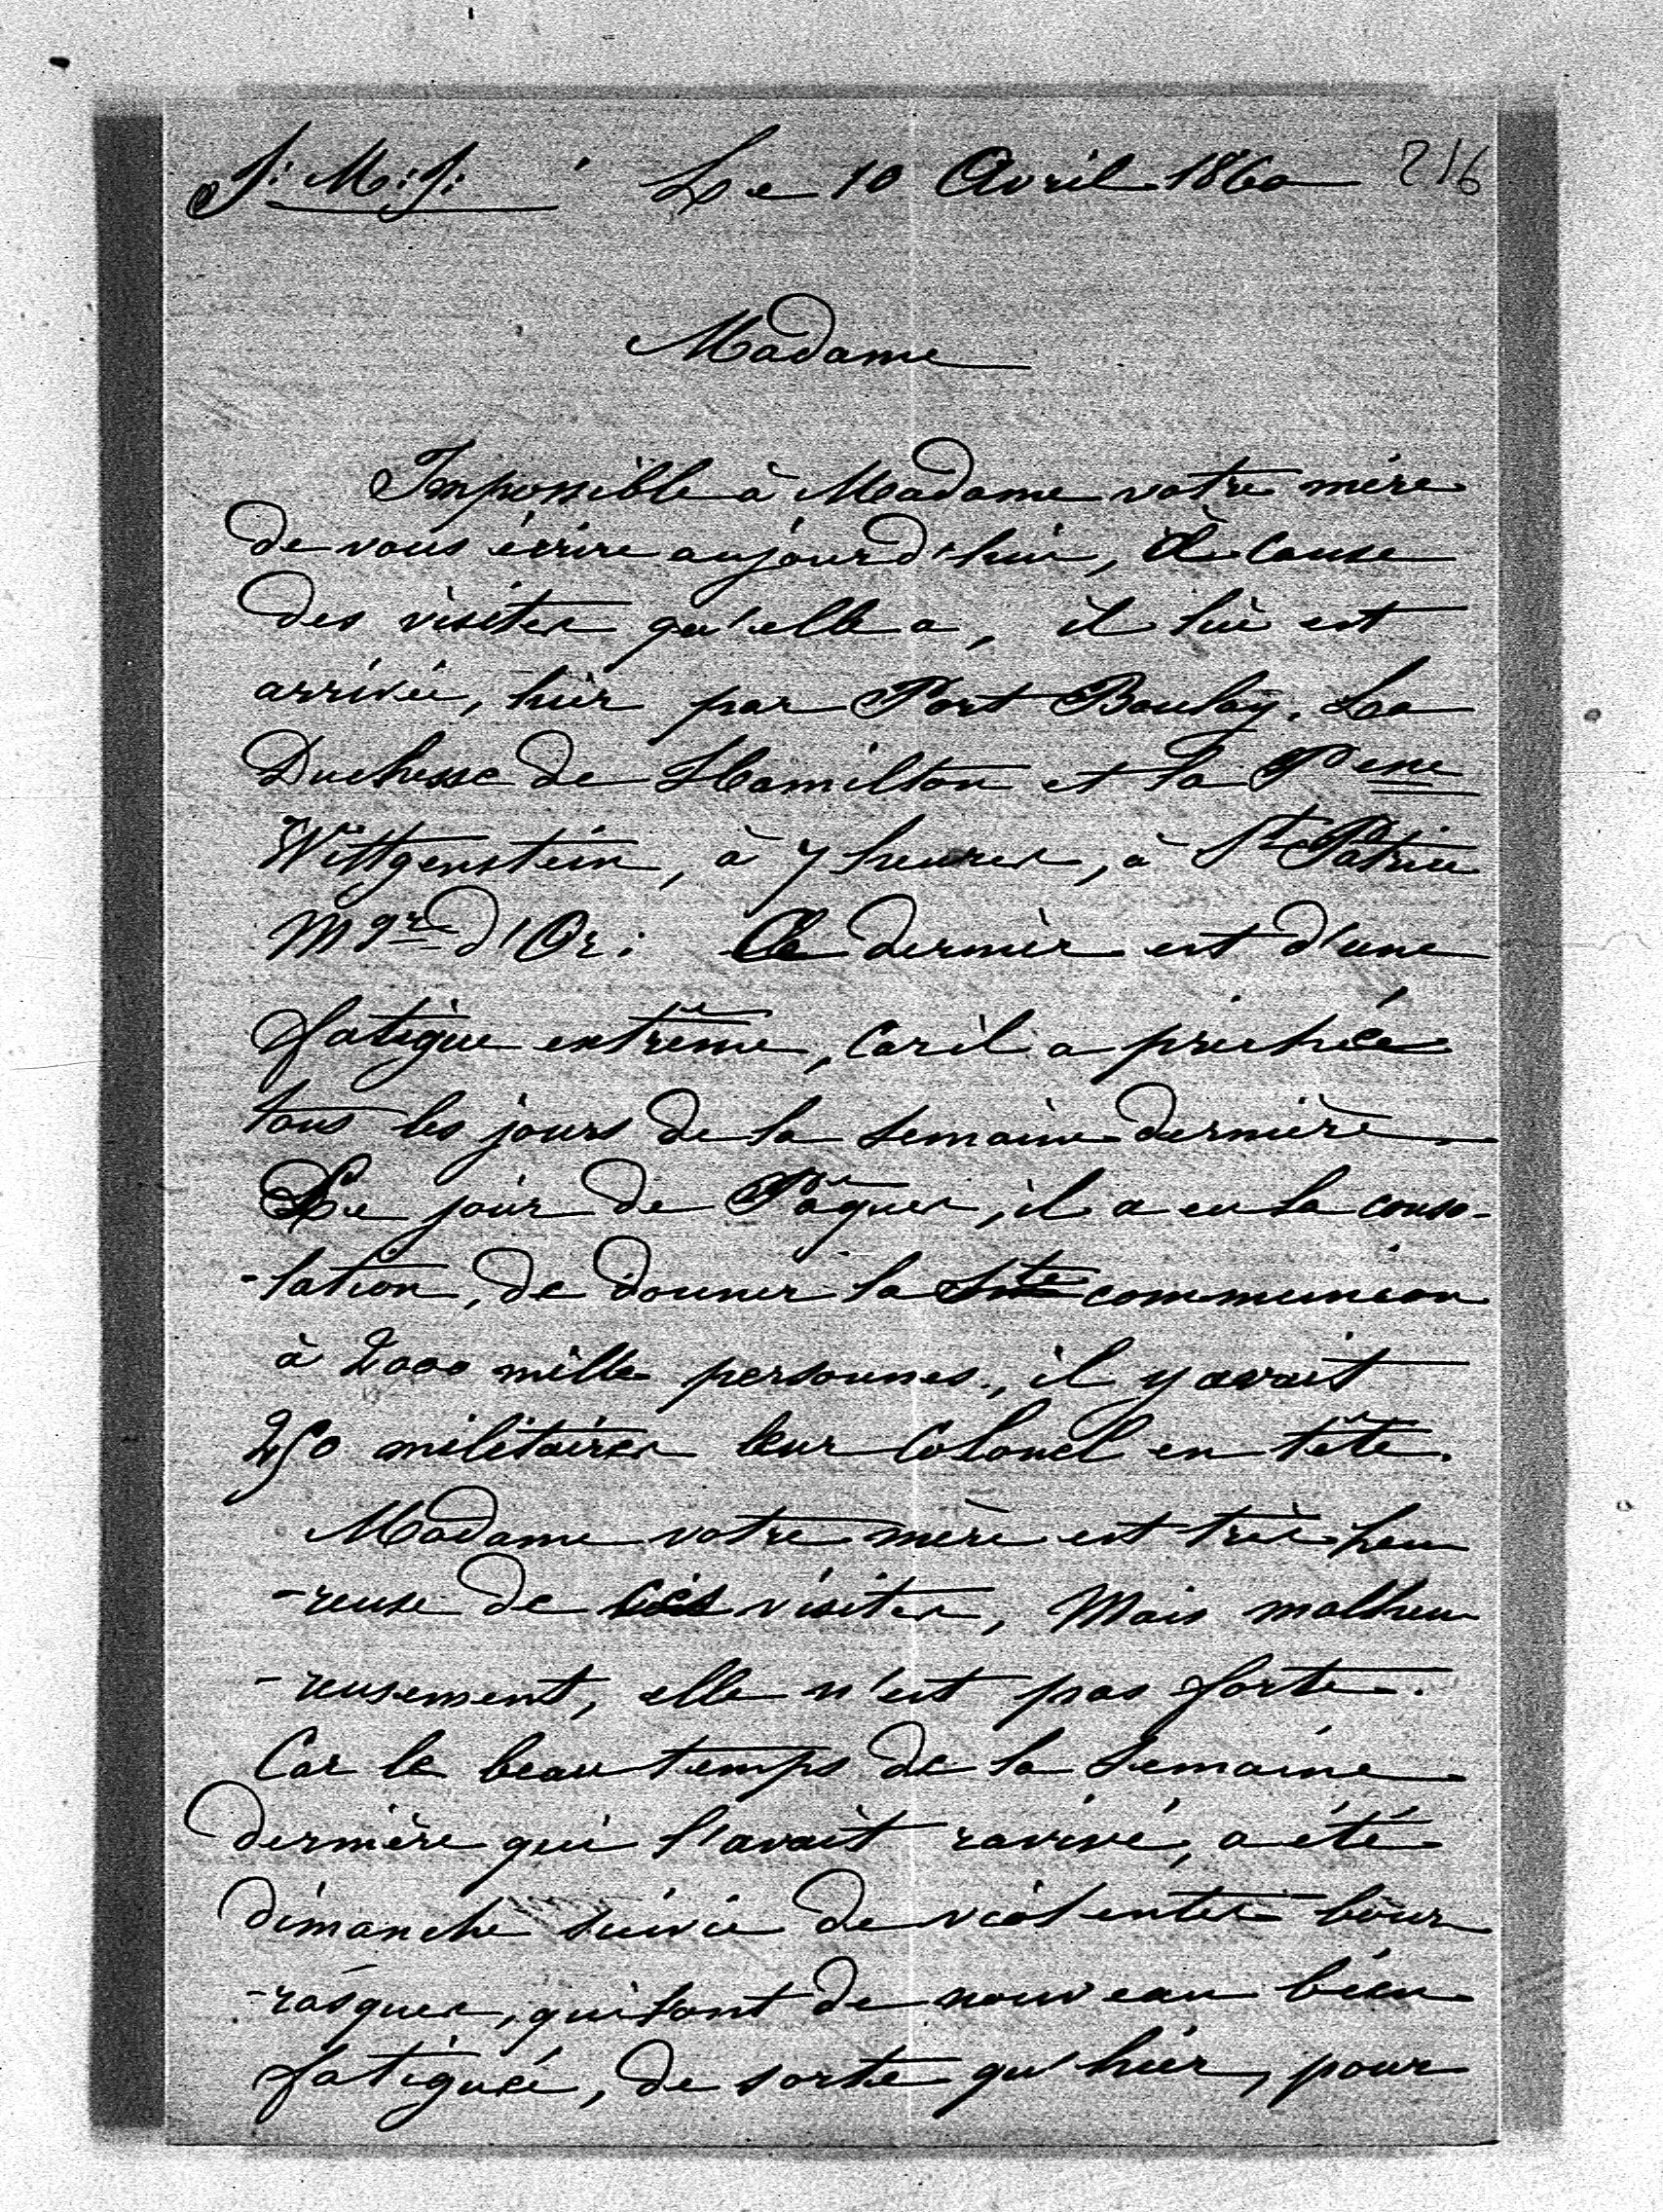 J: M: J: Le 10 Avril 1860 216
Madame
Impossible à Madame votre mère
de vous écrire aujourd'hui, à cause
des visites qu'elle a, il lui est
arrivée, hier par Port Boulay. La
Duchesse de Hamilton et la Pcesse
Wittgenstein, à 7 heures, à St Patrice
Mgr d'Or: Ce dernier est d'une
fatigue extrême, car il a prêchée
tous les jours de la semaine dernière
Le jour de Pâques, il a eu la conso-
-lation, de donner la Ste communion
à 2000 mille personnes, il y avait
250 militaires leur Colonel en tête.
Madame votre mère est très heu
-reuse de ces visites, Mais malheu
-reusement, elle n'est pas forte.
Car le beau temps de la semaine
dernière qui l'avait ravivé, a été
dimanche suivie de violentes bour
-rasques, qui l'ont de nouveau bien
fatiguée, de sorte qu'hier, pour